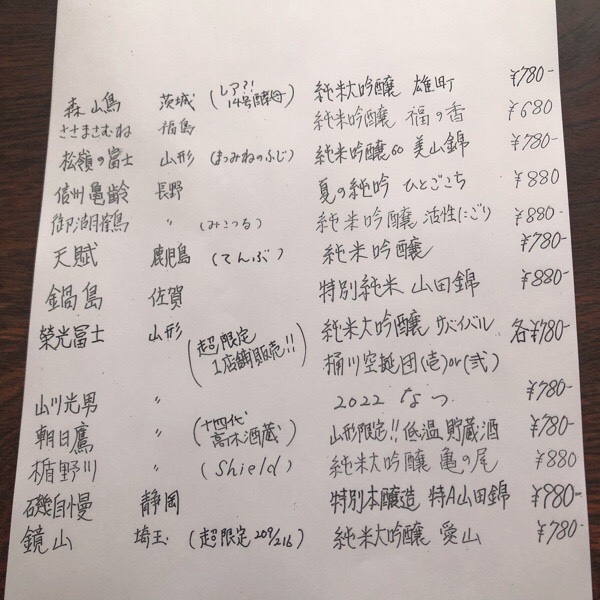 森山鳥 茨城 (レア?! 14号酵母) 純米大吟醸 雄町 ¥780-
ささまさむね 福島 純米吟醸 福の香 ¥680
松嶺の富士 山形 (まつみねのふじ) 純米吟醸60 美山錦 ¥780-
信州亀齢 長野 夏の純吟 ひとごこち ¥880
御湖鶴 〃 (みこつる) 純米吟醸 活性にごり ¥880-
天賦 鹿児島 (てんぶ) 純米吟醸 ¥780-
鍋島 佐賀 特別純米 山田錦 ¥880-
榮光冨士 山形 (超限定 1店舗販売!!) 純米大吟醸 サバイバル 各¥780-
桶川空挺団(壱)or(弐)
山川光男 〃 2022 なつ ¥780-
朝日鷹 〃 (十四代 高木酒蔵) 山形限定!!低温貯蔵酒 ¥780-
楯野川 〃 (Shield) 純米大吟醸 亀の尾 ¥880
磯自慢 静岡 特別本醸造 特A山田錦 ¥980-
鏡山 埼玉 (超限定 209/216) 純米大吟醸 愛山 ¥780-